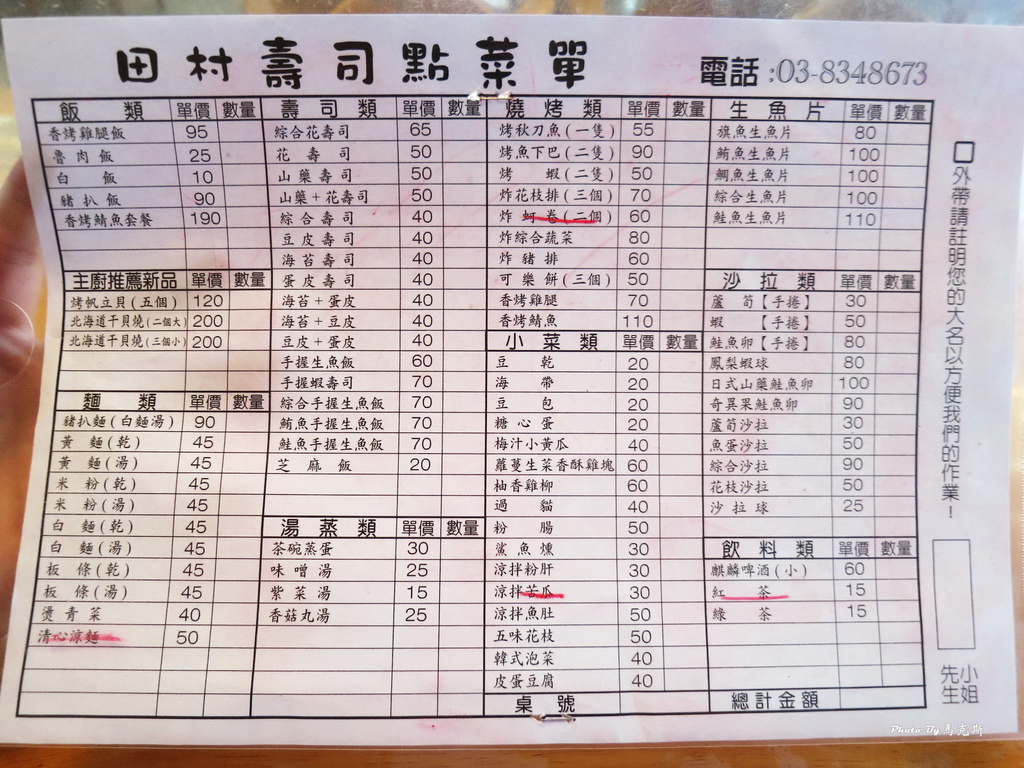 田村壽司點菜單
電話:03-8348673
飯類 單價 數量
香烤雞腿飯 95
魯肉飯 25
白飯 10
豬扒飯 90
香烤鯖魚套餐 190
主廚推薦新品 單價 數量
烤帆立貝(五個) 120
北海道干貝燒(二個大) 200
北海道干貝燒(三個小) 200
麵類 單價 數量
豬扒麵(白麵湯) 90
黃麵(乾) 45
黃麵(湯) 45
米粉(乾) 45
米粉(湯) 45
白麵(乾) 45
白麵(湯) 45
板條(乾) 45
板條(湯) 45
燙青菜 40
清心涼麵 50
壽司類 單價 數量
綜合花壽司 65
花壽司 50
山藥壽司 50
山藥+花壽司 50
綜合壽司 40
豆皮壽司 40
海苔壽司 40
蛋皮壽司 40
海苔+蛋皮 40
海苔+豆皮 40
豆皮+蛋皮 40
手握生魚飯 60
手握蝦壽司 70
綜合手握生魚飯 70
鮪魚手握生魚飯 70
鮭魚手握生魚飯 70
芝麻飯 20
湯蒸類 單價 數量
茶碗蒸蛋 30
味噌湯 25
紫菜湯 15
香菇丸湯 25
燒烤類 單價 數量
烤秋刀魚(一隻) 55
烤魚下巴(二隻) 90
烤蝦(二隻) 50
炸花枝排(三個) 70
炸蚵卷(二個) 60
炸綜合蔬菜 80
炸豬排 60
可樂餅(三個) 50
香烤雞腿 70
香烤鯖魚 110
小菜類 單價 數量
豆乾 20
海帶 20
豆包 20
糖心蛋 20
梅汁小黃瓜 40
蘿蔓生菜香酥雞塊 60
柚香雞柳 60
過貓 40
粉腸 50
鯊魚燻 30
涼拌粉肝 30
涼拌苦瓜 30
涼拌魚肚 50
五味花枝 50
韓式泡菜 40
皮蛋豆腐 40
桌號
生魚片 單價 數量
旗魚生魚片 80
鮪魚生魚片 100
鯛魚生魚片 100
綜合生魚片 100
鮭魚生魚片 110
沙拉類 單價 數量
蘆筍【手捲】 30
蝦【手捲】 50
鮭魚卵【手捲】 80
鳳梨蝦球 80
日式山藥鮭魚卵 100
奇異果鮭魚卵 90
蘆筍沙拉 30
魚蛋沙拉 50
綜合沙拉 90
花枝沙拉 50
沙拉球 25
飲料類 單價 數量
麒麟啤酒(小) 60
紅茶 15
綠茶 15
總計金額
□外帶請註明您的大名以方便我們的作業!
小姐
先生
Photo By 馬克斯